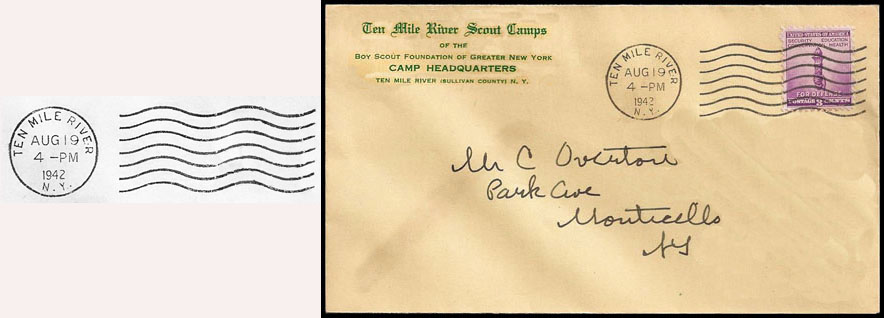 TEN MILE RIVER
AUG 19
4 -PM
1942
N.Y.
Ten Mile River Scout Camps
OF THE
BOY SCOUT FOUNDATION OF GREATER NEW YORK
CAMP HEADQUARTERS
TEN MILE RIVER (SULLIVAN COUNTY) N. Y.
TEN MILE RIVER
AUG 19
4 -PM
1942
N.Y.
UNITED STATES OF AMERICA
SECURITY EDUCATION
HEALTH
FOR DEFENSE
POSTAGE 3 CENTS
Mr C Overton
Park Ave
Monticello
NY